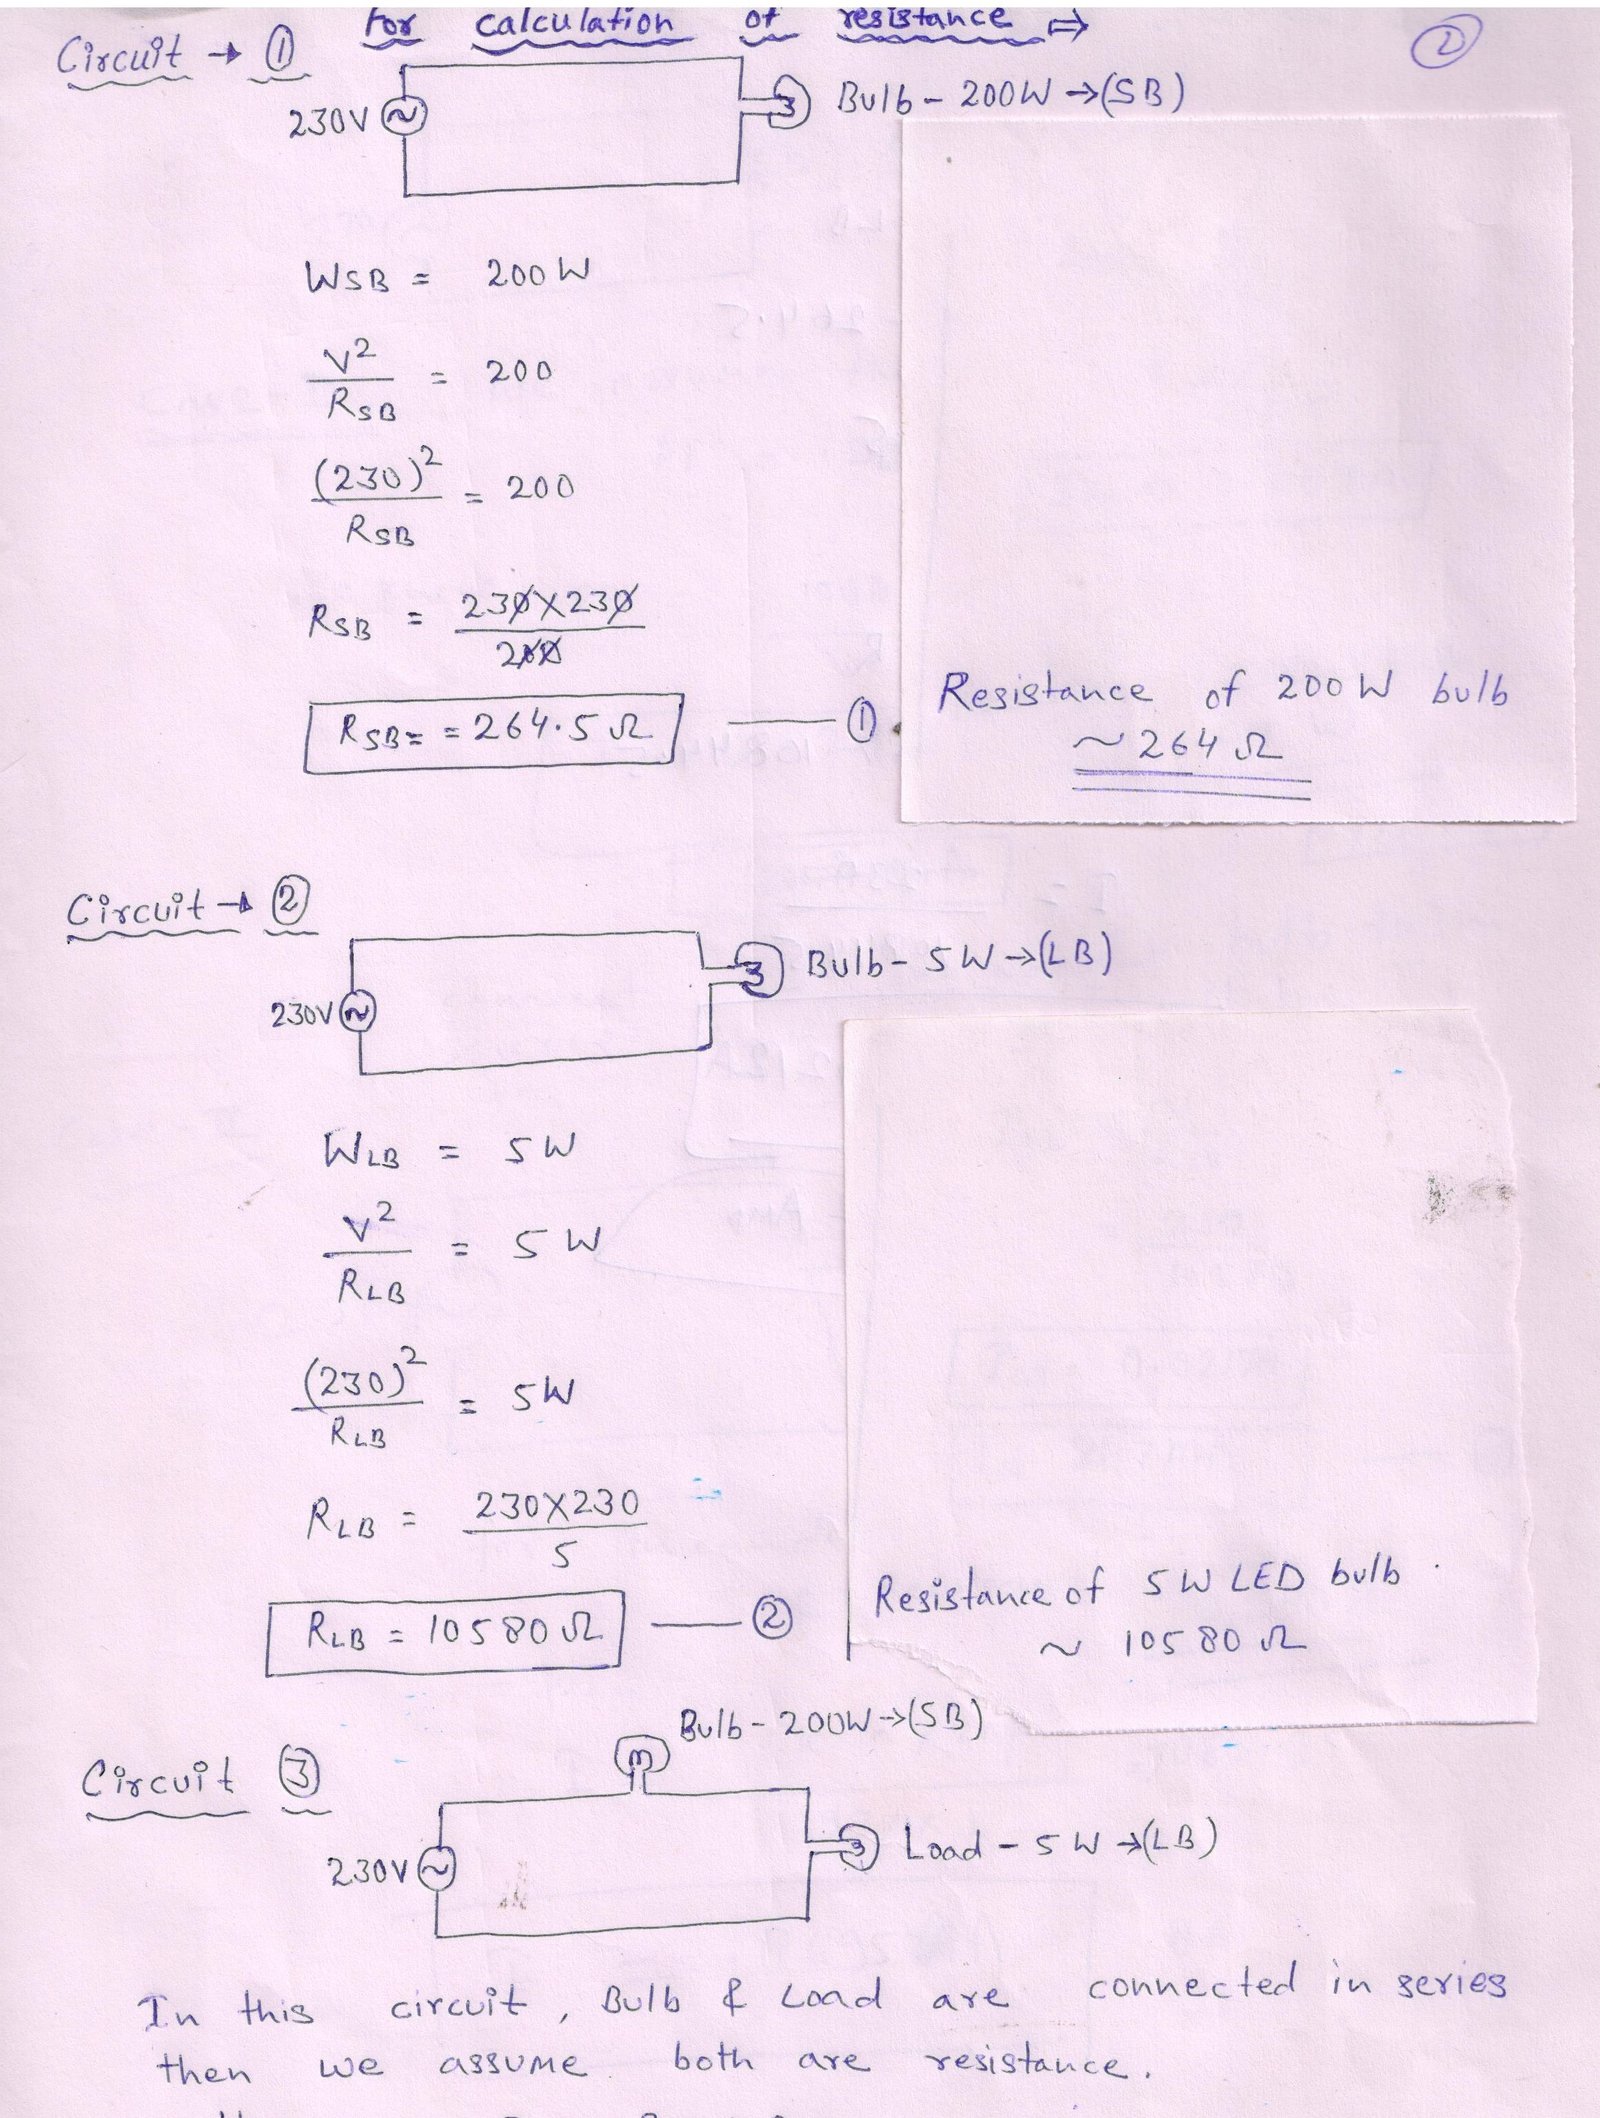 for calculation of resistance ⇒
Circuit → ①
②
230V
Bulb - 200W → (SB)
WSB = 200 W
V²/RSB = 200
(230)²/RSB = 200
RSB = 230X230/200
RSB= = 264.5 Ω —— ①
Resistance of 200 W bulb
~ 264 Ω
Circuit → ②
230V
Bulb - 5 W → (LB)
WLB = 5 W
V²/RLB = 5 W
(230)²/RLB = 5W
RLB = 230X230/5
RLB = 10580 Ω —— ②
Resistance of 5 W LED bulb
~ 10580 Ω
Bulb - 200W → (SB)
Circuit ③
230V
Load - 5 W → (LB)
In this circuit, Bulb & Load are connected in series
then we assume both are resistance.